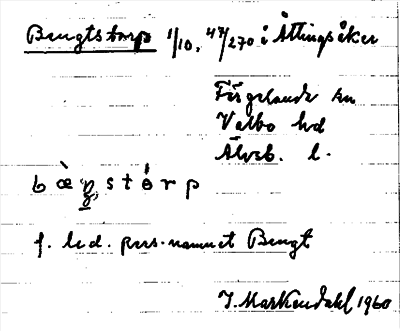 Bengtstorp 1/10, 47/270 i Åttingsåker
Färgelanda sn
Valbo hd
Älvsb. l.
b æ̀ ŋ, s t ó r p
f. led. pers.-namnet Bengt
I. Markendahl 1960